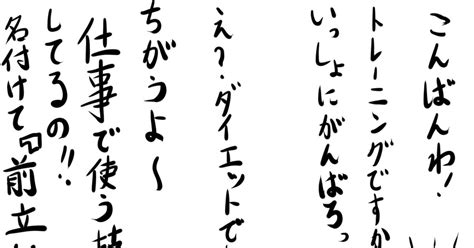 こんばんわ!
トレーニングですか
いっしょにがんばろっ
え?・ダイエットで
ちがうよ〜
仕事で使う
してるの!!
名付けて『前立